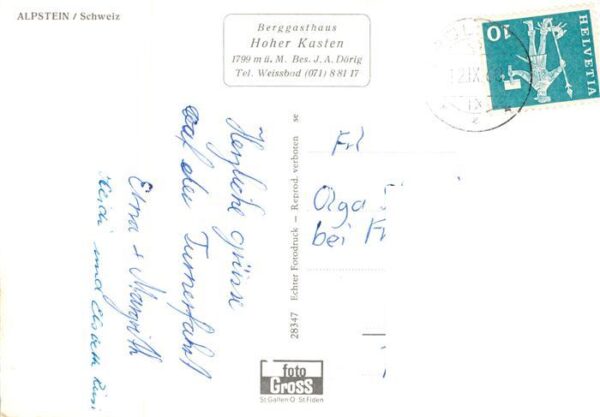 ALPSTEIN / Schweiz
Berggasthaus
Hoher Kasten
1799 m ü. M. Bes. J. A. Dörig
Tel. Weissbad (071) 8 81 17
HELVETIA
10
Herzliche Grüsse
auf der Turnerfahrt
Erna + Margrith
Heidi und Elsbeth
28347 Echter Fotodruck — Reprod. verboten se
Frl
Olga
bei
foto
Gross
St. Gallen O St. Fiden